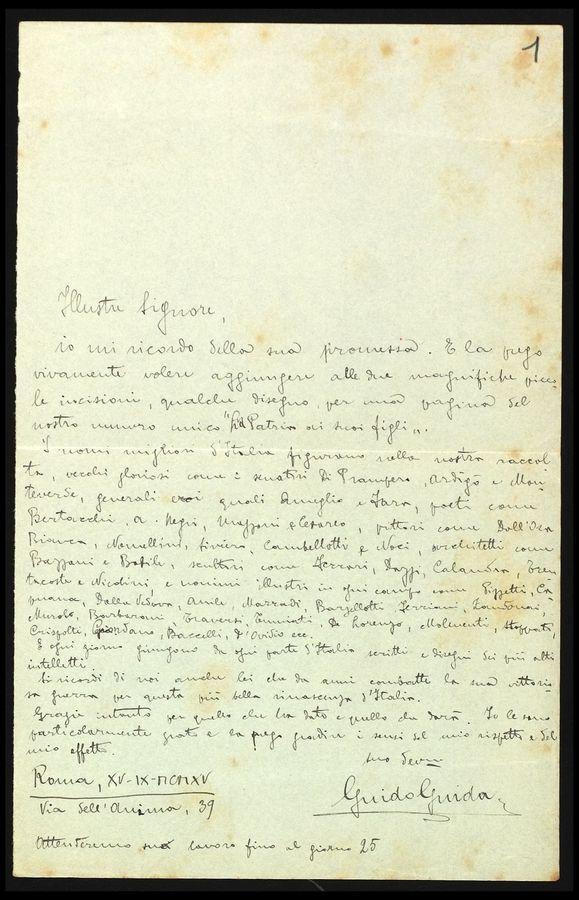 1
Illustre Signore,
io mi ricordo della sua promessa. E la prego
vivamente volere aggiungere alle due magnifiche picco-
le incisioni, qualche disegno, per una pagina del
nostro numero unico "La Patria ai suoi figli".
I nomi migliori d'Italia figurano nella nostra raccol
ta, vecchi gloriosi come i senatori Di Prampero, Ardigò e Mon-
teverde, generali eroi quali Ameglio e Fara, poeti come
Bertacchi, A. Negri, Mazzoni e Cesareo, pittori come Dall'Oca
Bianca, Nomellini, Siviero, Cambellotti e Noci, architetti come
Bazzani e Basile, scultori come Ferrari, Dazzi, Calandra, Tren
tacoste e Nicolini e uomini illustri in ogni campo come Pizzetti, Ca
puana, Dalla Vedova, Marradi, Barzellotti, Zambonini,
Murolo, Barbarani, Traversi, De Lorenzo, Molmenti, Stoppato,
Crispolti, Giordano, Baccelli, D'Ovidio ecc.
E ogni giorno giungono da ogni parte d'Italia scritti e disegni dei più alti
intelletti.
Si ricordi di noi anche lei che da anni combatte la sua vittorio-
sa guerra per questa più bella rinascenza d'Italia.
Grazie intanto per quello che ha dato e quello che darà. Io le sono
particolarmente grato e la prego gradire i sensi del mio rispetto e del
mio affetto.
suo dev.mo
Roma, XV-IX-MCMXV
Guido Guida
Via dell'Anima, 39
Attenderemo suo lavoro fino al giorno 25